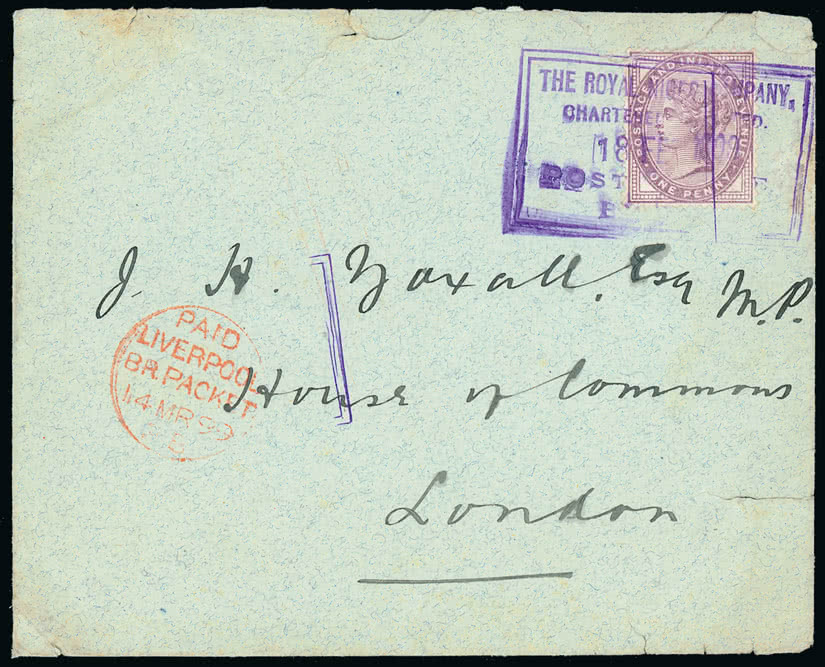 THE ROYAL NIGER COMPANY,
CHARTERED LIMITED.
18 1899
POST
POSTAGE AND INLAND REVENUE
ONE PENNY
J. H. Yoxall. Esq M.P.
PAID
LIVERPOOL
BR. PACKET
14 MR 99
House of Commons
London